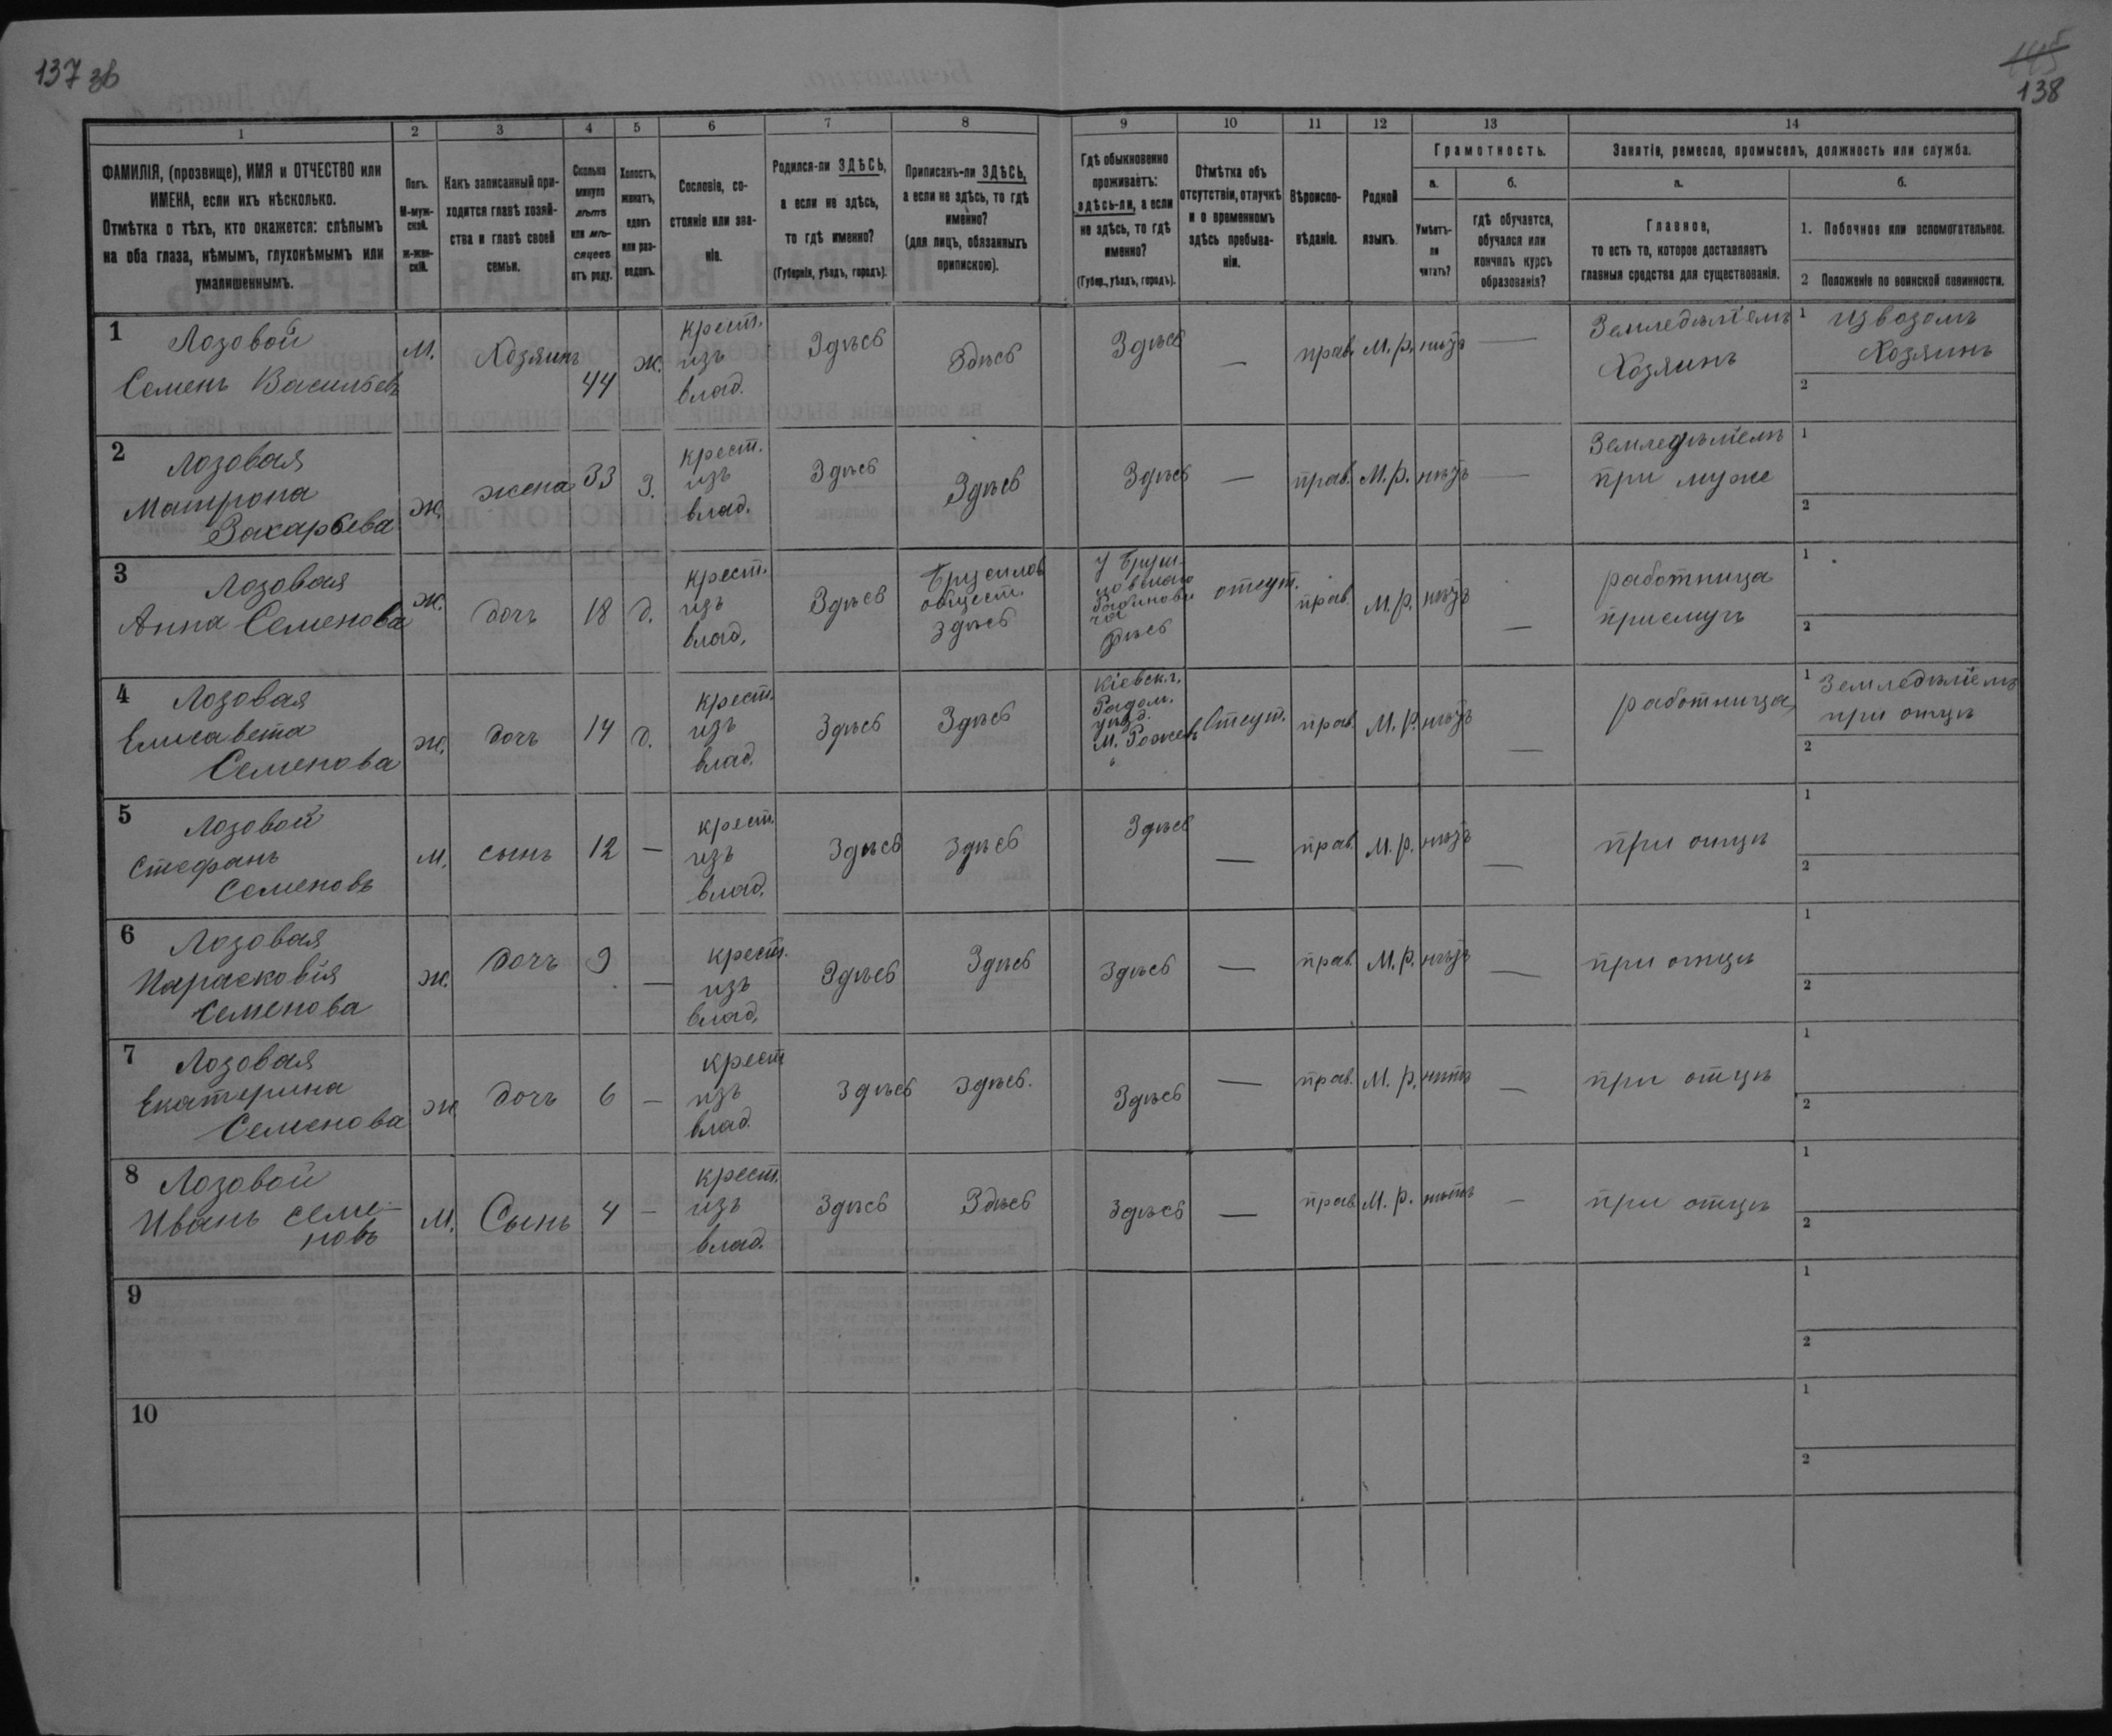 137 зв
145
138
1
2
3
4
5
6
7
8
9
10
11
12
13
14
ФАМИЛІЯ, (прозвище), ИМЯ и ОТЧЕСТВО или
ИМЕНА, если ихъ нѣсколько.
Отмѣтка о тѣхъ, кто окажется: слѣпымъ
на оба глаза, нѣмымъ, глухонѣмымъ или
умалишеннымъ.
Полъ.
М-муж-
ской.
ж-жен-
скій.
Какъ записанный при-
ходится главѣ хозяй-
ства и главѣ своей
семьи.
Сколько
минуло
лѣтъ
или мѣ-
сяцевъ
отъ роду.
Холостъ,
женатъ,
вдовъ
или раз-
веденъ.
Сословіе, со-
стояніе или зва-
ніе.
Родился-ли ЗДѢСЬ,
а если не здѣсь,
то гдѣ именно?
(Губернія, уѣздъ, городъ).
Приписанъ-ли ЗДѢСЬ,
а если не здѣсь, то гдѣ
именно?
(для лицъ, обязанныхъ
припискою).
Гдѣ обыкновенно
проживаетъ:
здѣсь-ли, а если
не здѣсь, то гдѣ
именно?
(Губер., уѣздъ, городъ).
Отмѣтка объ
отсутствіи, отлучкѣ
и о временномъ
здѣсь пребыва-
ніи.
Вѣроиспо-
вѣданіе.
Родной
языкъ.
Грамотность.
а.
Умѣетъ-
ли
читать?
б.
гдѣ обучается,
обучался или
кончилъ курсъ
образованія?
Занятія, ремесло, промыселъ, должность или служба.
а.
Главное,
то есть то, которое доставляетъ
главныя средства для существованія.
б.
1. Побочное или вспомогательное.
2 Положеніе по воинской повинности.
1
Лозовой
Семенъ Васильевъ
М.
Хозяинъ
44
ж.
крест.
изъ
влад.
Здѣсь
Здѣсь
Здѣсь
—
прав.
М.р.
нѣтъ
—
Земледѣліемъ
Хозяинъ
1
извозомъ
Хозяинъ
2
2
Лозовая
Матрона
Захарьева
ж.
жена
33
З.
крест.
изъ
влад.
Здѣсь
Здѣсь
Здѣсь
—
прав.
М.р.
нѣтъ
—
Земледѣліемъ
при муже
1
2
3
Лозовая
Анна Семенова
ж.
дочь
18
д.
крест.
изъ
влад.
Здѣсь
Брусилов
общест.
здѣсь
отсут.
прав.
М.р.
нѣтъ
—
работница
1
2
4
Лозовая
Елисавета
Семенова
ж.
дочь
14
д.
крест.
изъ
влад.
Здѣсь
Здѣсь
Кіевск.г.
Радом.
уѣзд.
М. Рожевъ
Отсут.
прав.
М.р.
нѣтъ
—
работница
1
Земледѣліемъ
при отцѣ
2
5
Лозовой
Стефанъ
Семеновъ
М.
сынъ
12
—
крест.
изъ
влад.
Здѣсь
Здѣсь
Здѣсь
—
прав.
М.р.
нѣтъ
—
при отцѣ
1
2
6
Лозовая
Парасковія
Семенова
ж.
дочь
9
—
крест.
изъ
влад.
Здѣсь
Здѣсь
Здѣсь
—
прав.
М.р.
нѣтъ
—
при отцѣ
1
2
7
Лозовая
Екатерина
Семенова
ж
дочь
6
—
крест
изъ
влад.
Здѣсь
Здѣсь.
Здѣсь
—
прав.
М.р.
нѣтъ
—
при отцѣ
1
2
8
Лозовой
Иванъ Семе-
новъ
М.
Сынъ
4
—
крест.
изъ
влад.
Здѣсь
Здѣсь
Здѣсь
—
прав.
М.р.
нѣтъ
—
при отцѣ
1
2
9
1
2
10
1
2